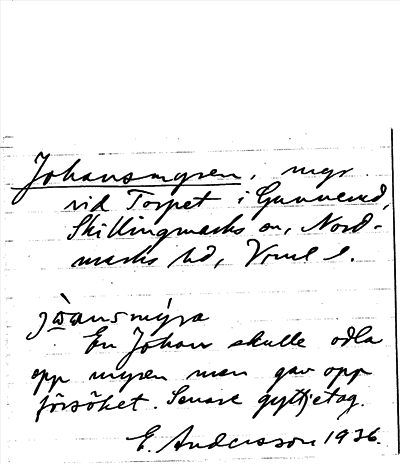 Johansmyren, myr
vid Torpet i Gunnerud,
Skillingmarks sn, Nord-
marks hd, Vrml l.
jòansmýra
En Johan skulle odla
upp myren men gav opp
försöket. Senare gyttjetag.
E. Andersson 1936.